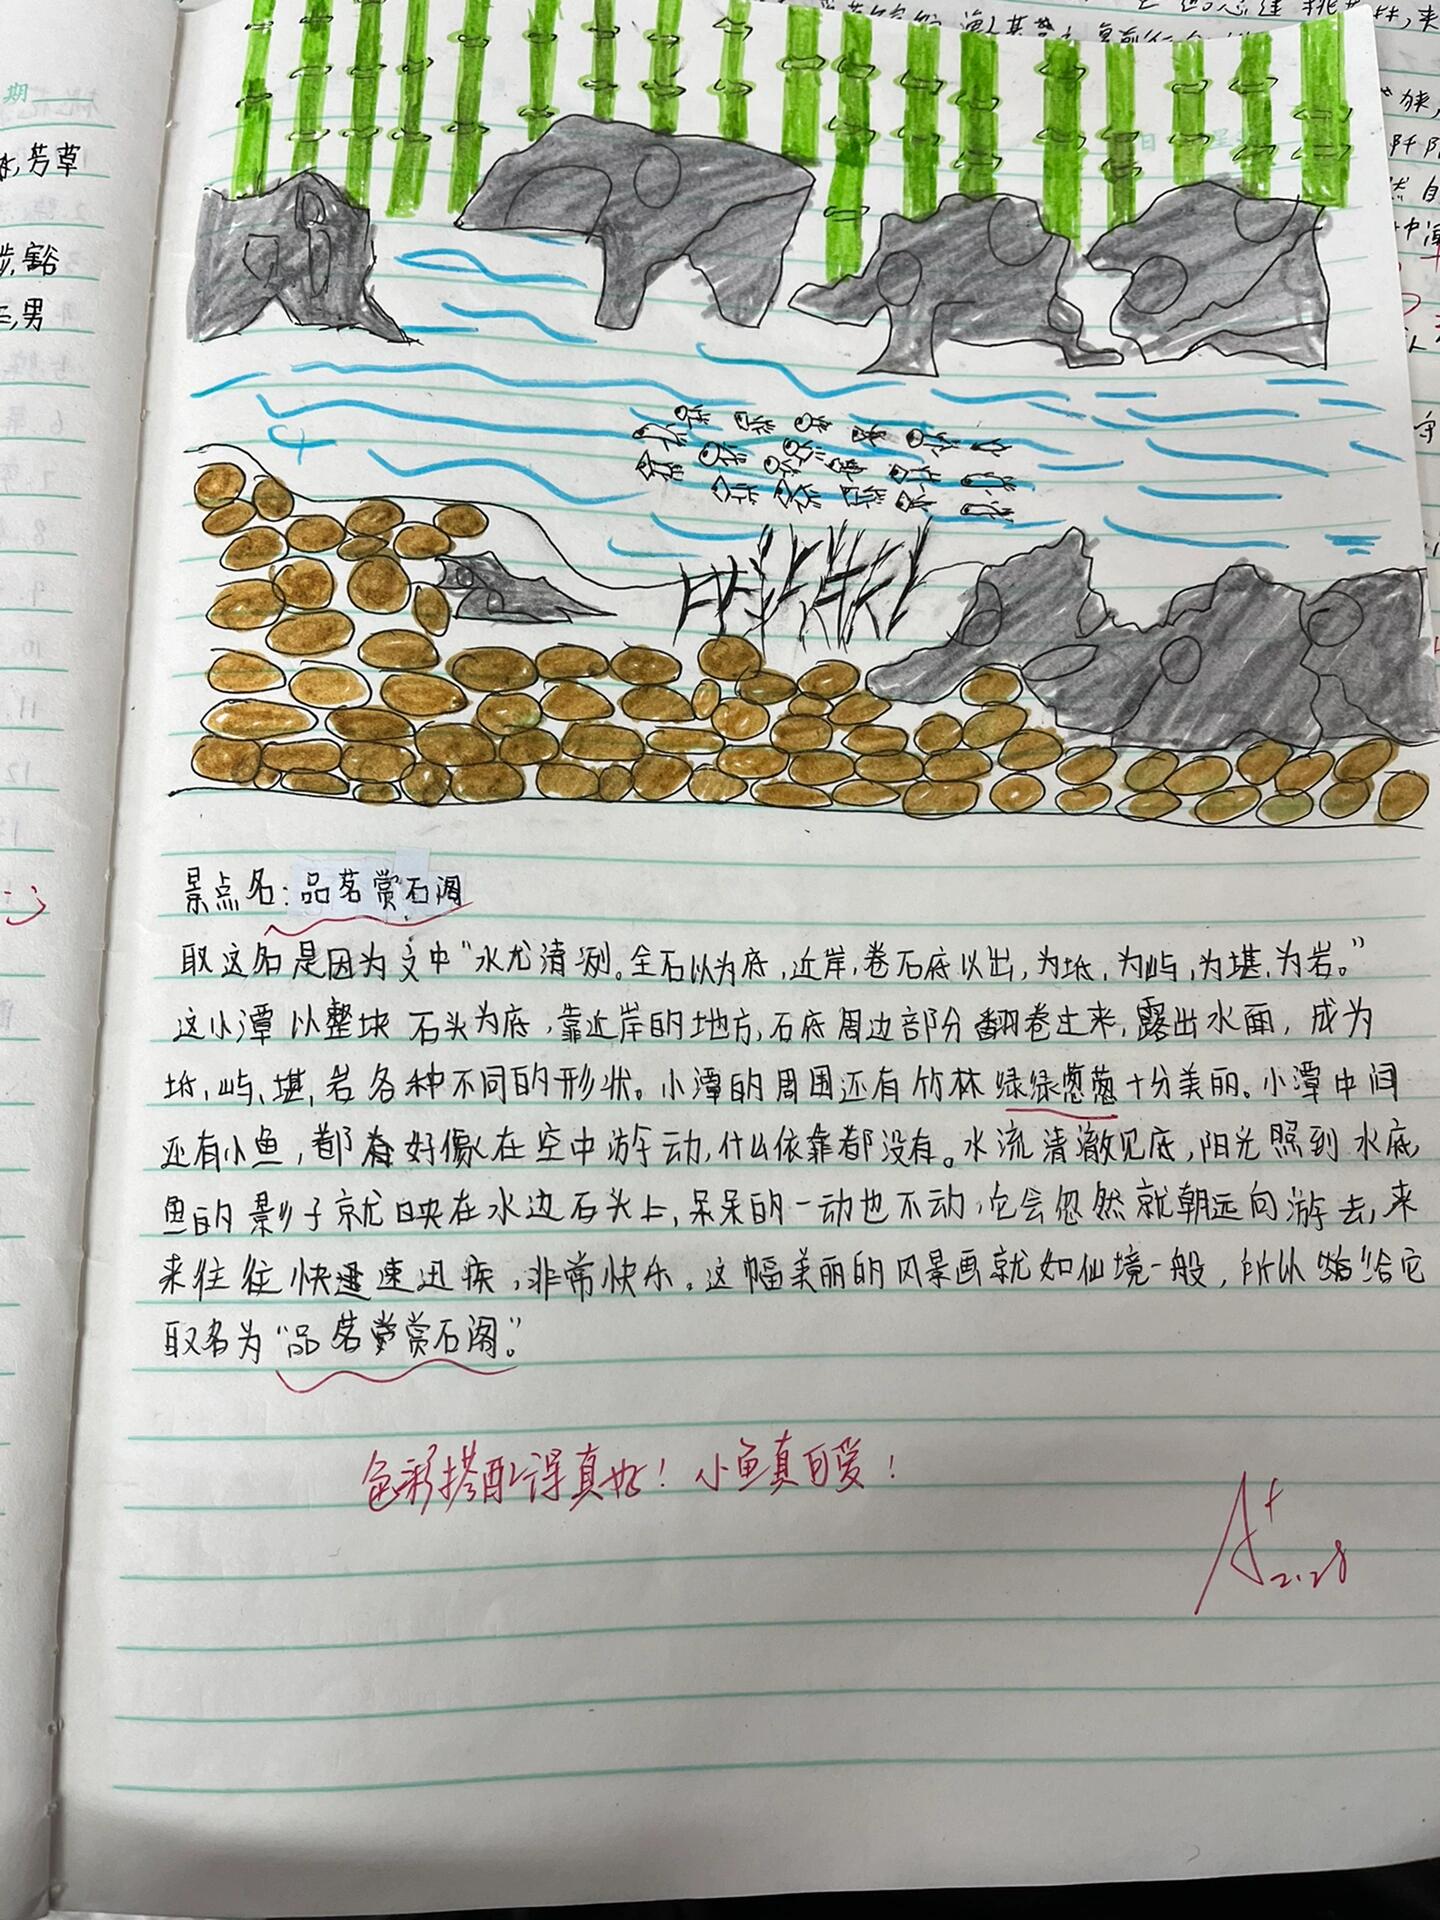 期
芳草
豁
男
景点名:品茗赏石阁
取这名是因为文中“水尤清冽。全石以为底,近岸,卷石底以出,为坻,为屿,为堪,为岩。”
这小潭以整块石头为底,靠近岸的地方,石底周边部分翻卷过来,露出水面,成为
坻,屿、堪,岩各种不同的形状。小潭的周围还有竹林绿绿葱葱十分美丽。小潭中间
还有小鱼,都好像在空中游动,什么依靠都没有。水流清澈见底,阳光照到水底,
鱼的影子就映在水边石头上,呆呆的一动也不动,它会忽然就朝远向游去,来
来往往快速迅疾,非常快乐。这幅美丽的风景画就如仙境一般,所以给它
取名为“品茗赏石阁。”
色彩搭配得真好!小鱼真可爱!
A+
2.28